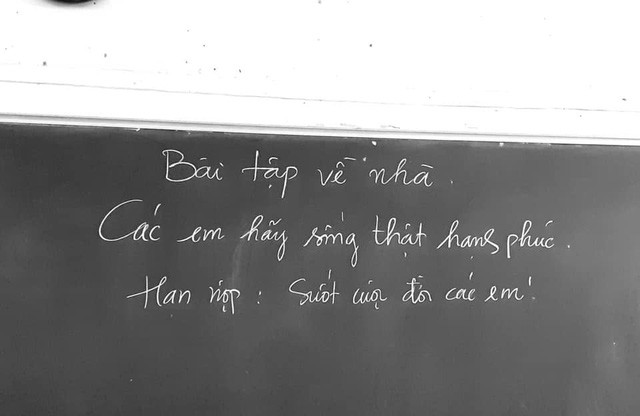 Bài tập về nhà.
Các em hãy sống thật hạnh phúc.
Hạn nộp: Suốt cuộc đời các em!